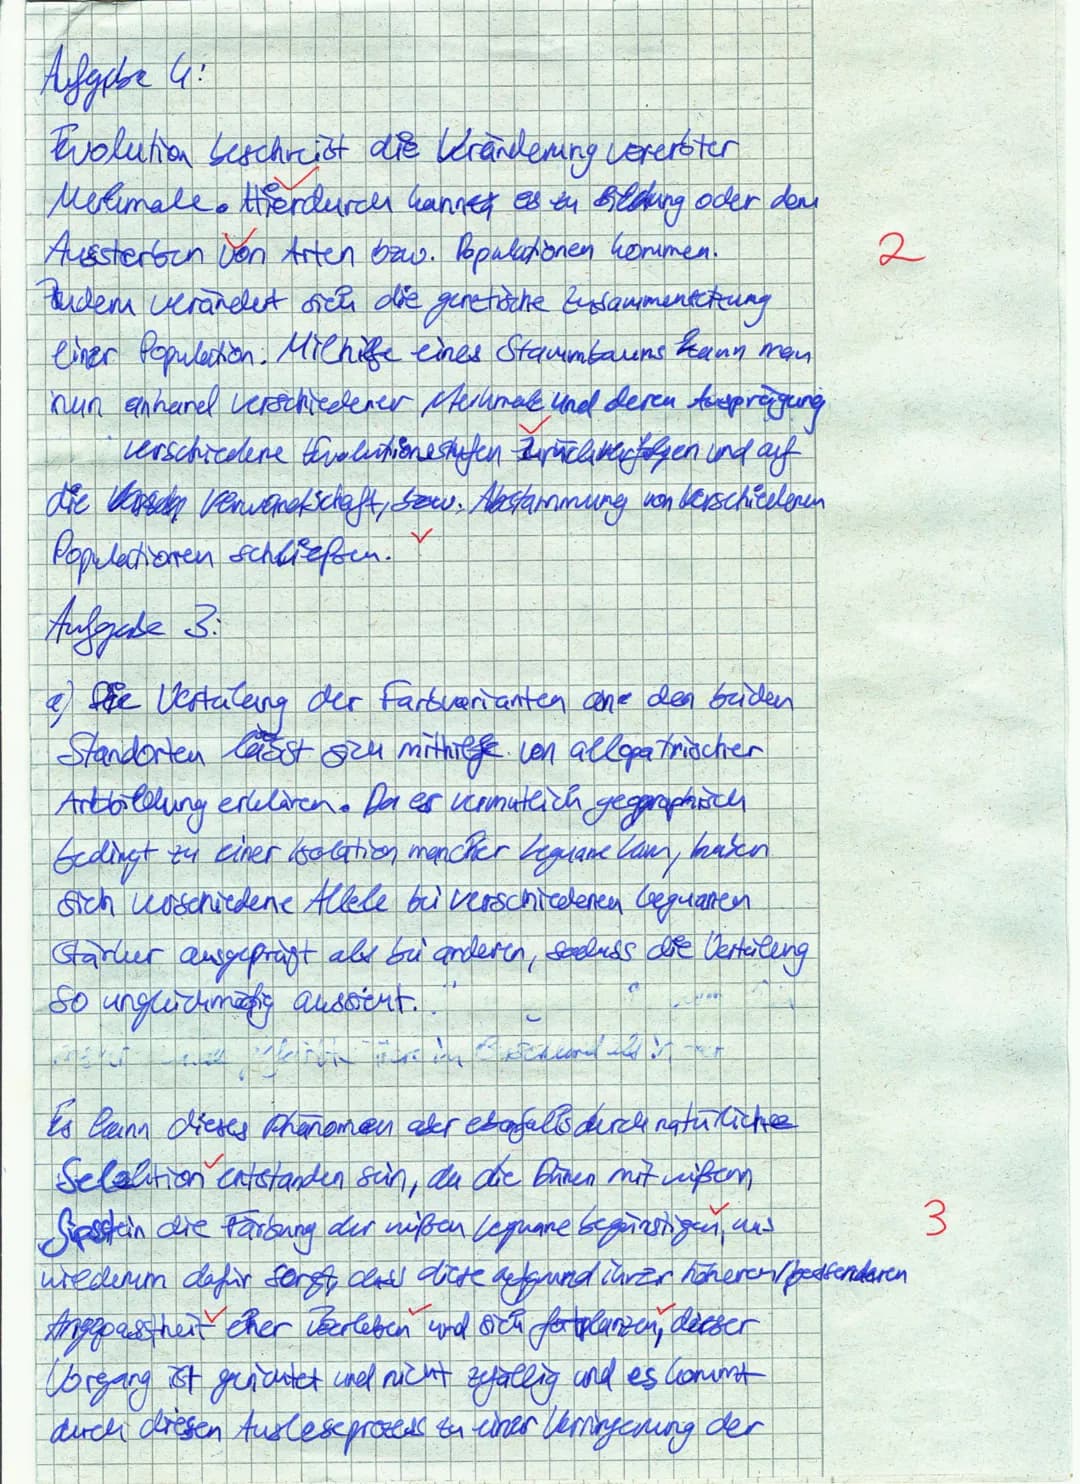 Aufgabe 4:
Evolution beschreibt die Veränderung vererbter
Merkmale. Hierdurch kann es zu Bildung oder dem
Aussterben von Arten bzw. Populationen kommen.
2
Zudem verändert sich die genetische Zusammensetzung
einer Population. Mithilfe eines Stammbaums kann man
nun anhand verschiedener Merkmale und deren Ausprägung
verschiedene Evolutionsstufen zurückverfolgen und auf
die Verwandschaft, bzw. Abstammung von verschiedenen
Populationen schließen.
Aufgabe 3:
a) Die Verteilung der Farbvarianten an den beiden
Standorten lässt sich mithilfe von allopatrischer
Artbildung erklären. Da es vermutlich geographisch
bedingt zu einer Isolation mancher Leguane kam, haben
sich verschiedene Allele bei verschiedenen Leguanen
stärker ausgeprägt als bei anderen, sodass die Verteilung
so ungleichmäßig aussieht.
Es kann dieses Phänomen aber ebenfalls durch natürliche
Selektion entstanden sein, da die Dünen mit weißem
Gipsstein die Färbung der weißen Leguane begünstigen, was
3
wiederum dafür sorgt, dass diese aufgrund ihrer höheren/besseren
Angepasstheit eher überleben und sich fortpflanzen, dieser
Vorgang ist gerichtet und nicht zufällig und es kommt
durch diesen Ausleseprozess zu einer Verringerung der